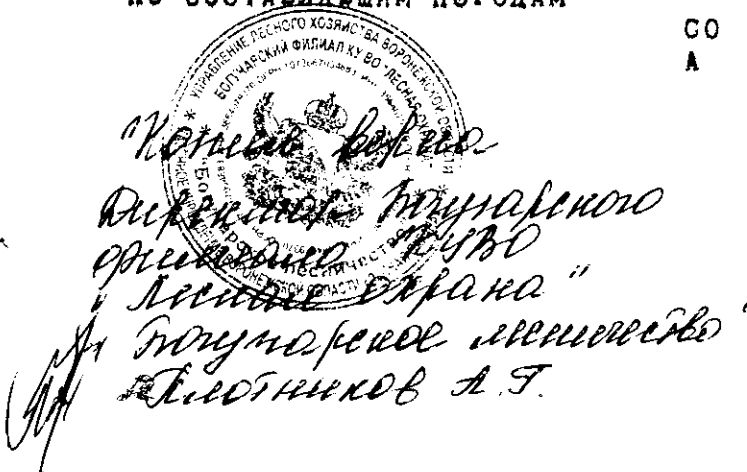 ПО СОСТАВЛЯЮЩИМ ПОРОДАМ
СО
А
УПРАВЛЕНИЕ ЛЕСНОГО ХОЗЯЙСТВА ВОРОНЕЖСКОЙ ОБЛАСТИ
БОГУЧАРСКИЙ ФИЛИАЛ КУ ВО "ЛЕСНАЯ
"Копия верна
Директор Богучарского
филиала КУВО
"Лесная охрана"
Богучарское лесничество"
Плотников А.Г.